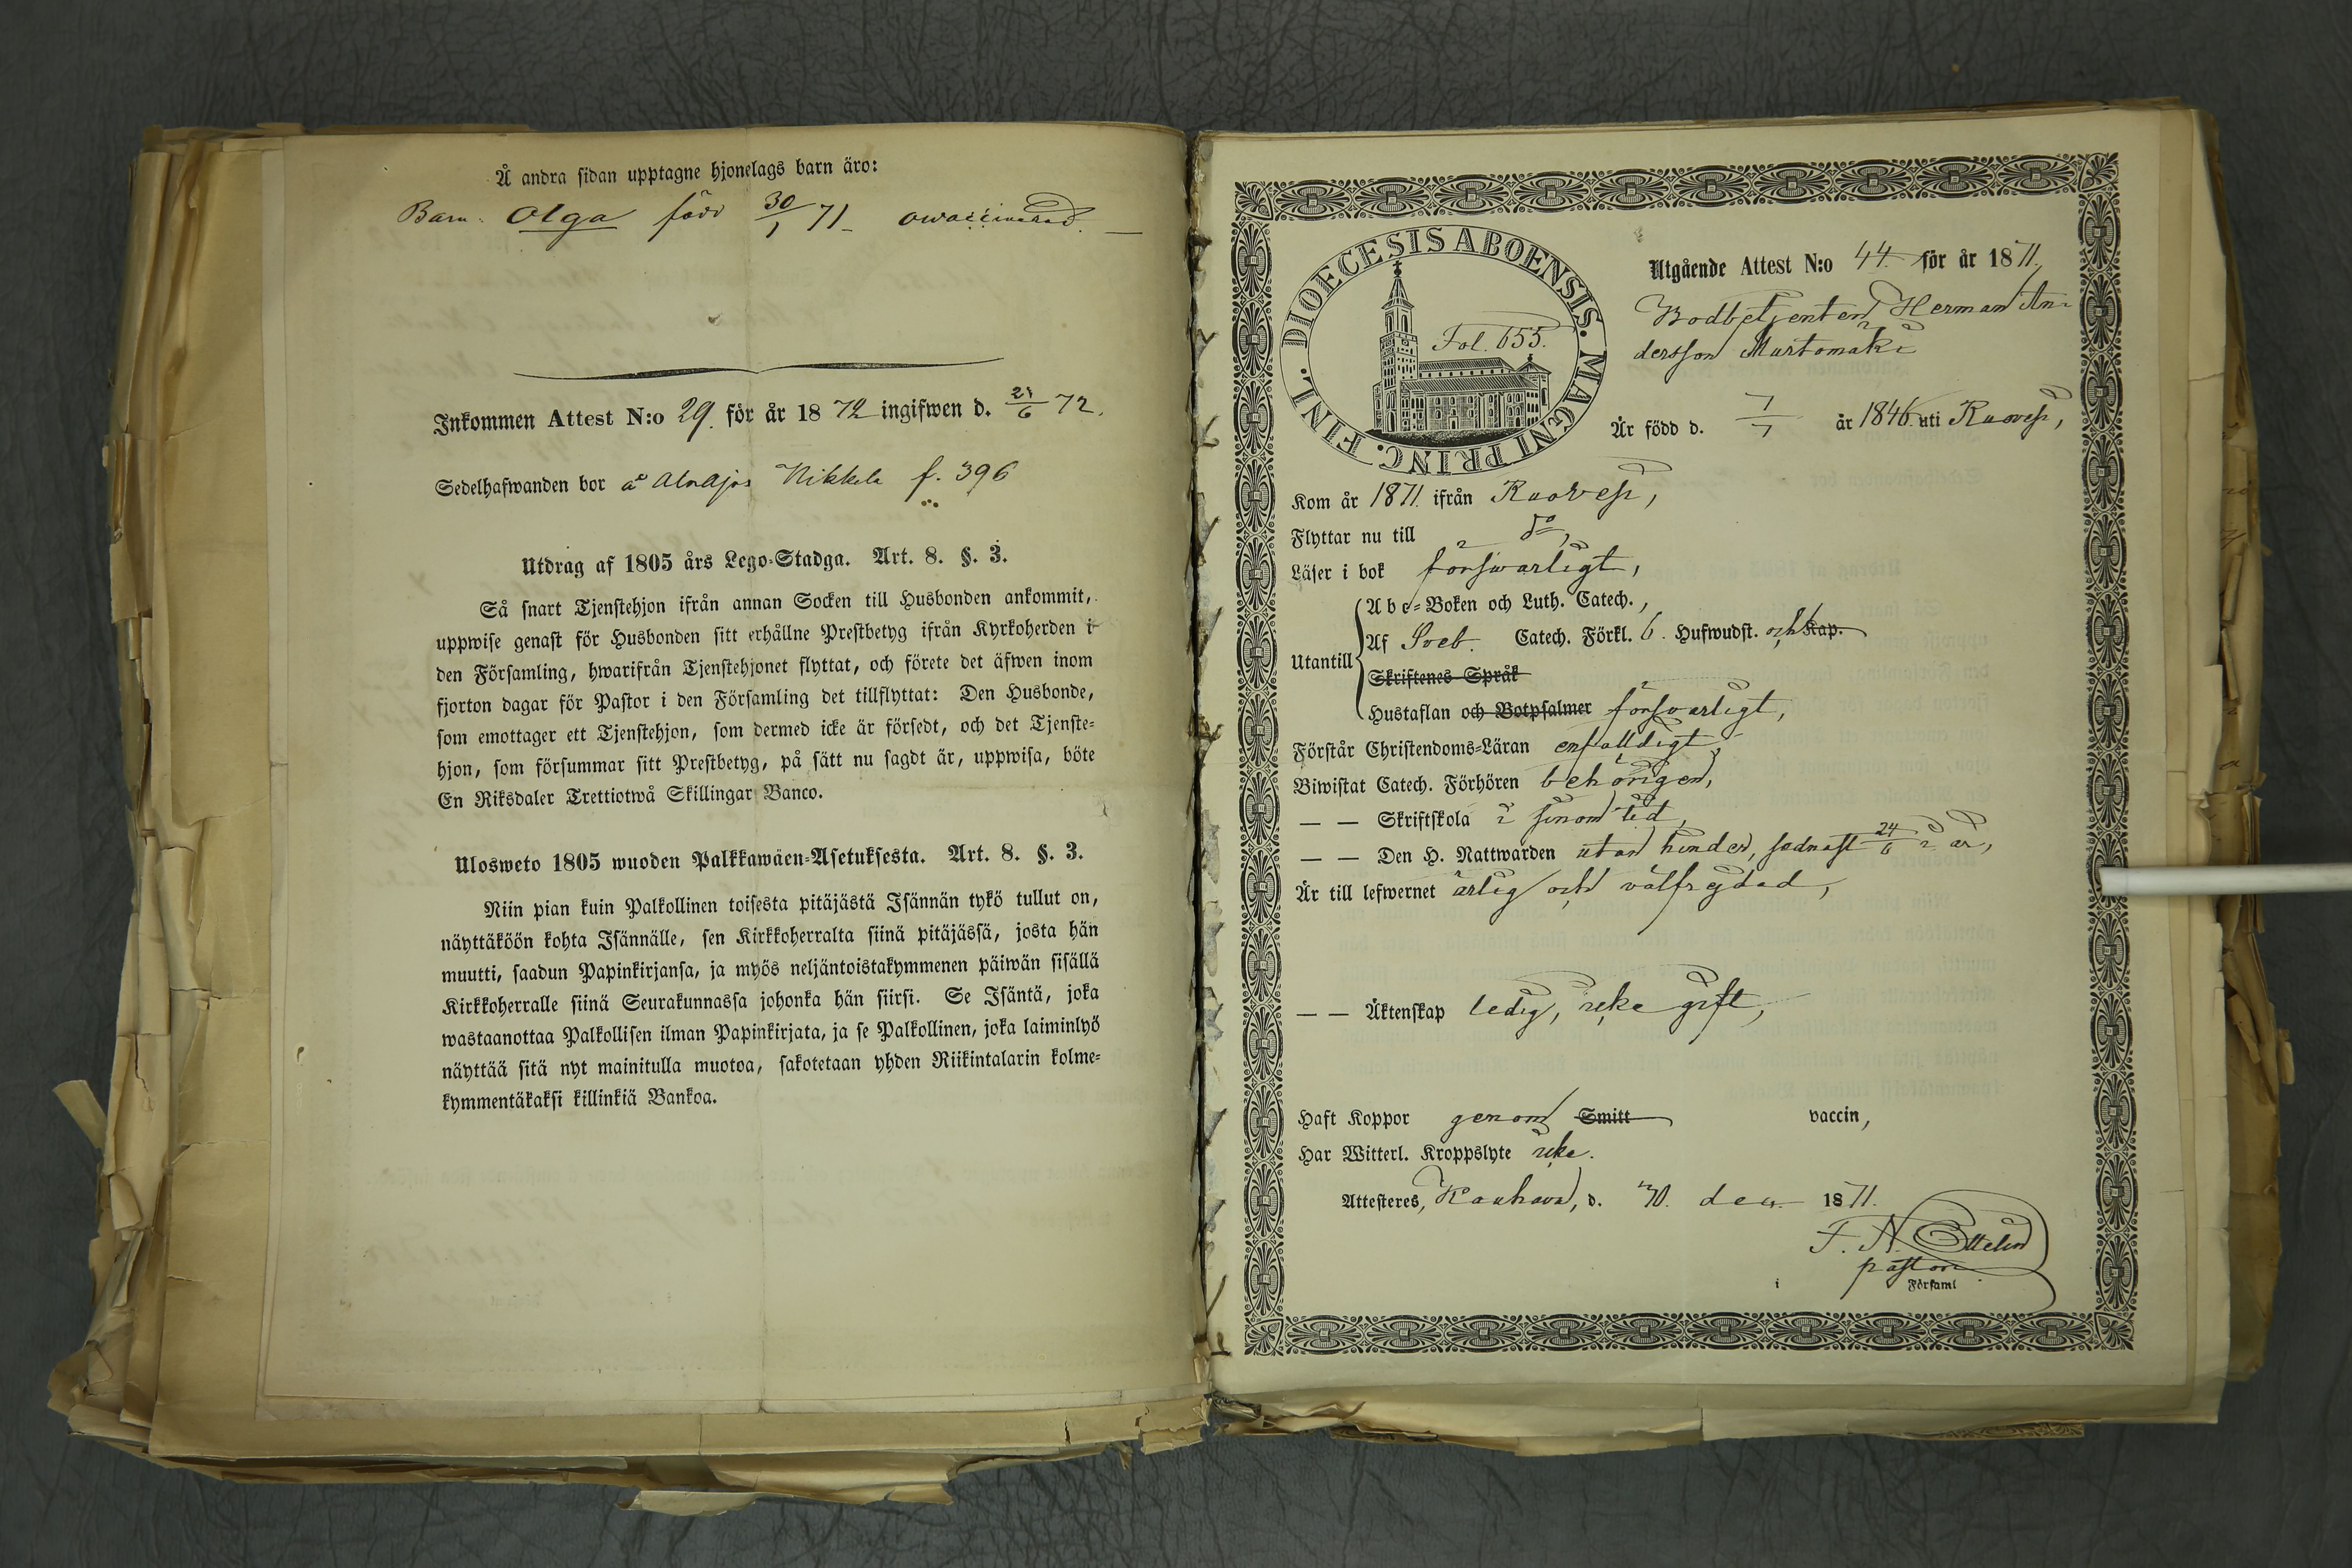 Å andra sidan upptagne hjonelags barn äro:
Barn: Olga född 30/1 71_ owaccinerad. —
Inkommen Attest N:o 29. för år 1872 ingifwen d. 6 72.
Sedelhafwanden bor å Nikkela f. 396
Utdrag af 1805 års Lego-Stadga. Art. 8. §. 3.
Så snart Tjenstehjon ifrån annan Socken till Husbonden ankommit,
uppwise genast för Husbonden sitt erhållne Prestbetyg ifrån Kyrkoherden i
den Församling, hwarifrån Tjenstehjonet flyttat, och förete det äfwen inom
fjorton dagar för Pastor i den Församling det tillflyttat: Den Husbonde,
som emottager ett Tjenstehjon, som dermed icke är försedt, och det Tjenste-
hjon, som försummar sitt Prestbetyg, på sätt nu sagdt är, uppwisa, böte
En Riksdaler Trettiotwå Skillingar Banco.
Ulosweto 1805 wuoden Palkkawäen-Asetuksesta. Art. 8. §. 3.
Niin pian kuin Palkollinen toisesta pitäjästä Isännän tykö tullut on,
näyttäköön kohta Isännälle, sen Kirkkoherralta siinä pitäjässä, josta hän
muutti, saadun Papinkirjansa, ja myös neljäntoistakymmenen päiwän sisällä
Kirkkoherralle siinä Seurakunnassa johonka hän siirsi. Se Isäntä, joka
wastaanottaa Palkollisen ilman Papinkirjata, ja se Palkollinen, joka laiminlyö
näyttää sitä nyt mainitulla muotoa, sakotetaan yhden Riikintalarin kolme-
kymmentäkaksi killinkiä Bankoa.
DIOECESIS ABOENSIS. MAGNI PRINC. FINL.
Fol. 655.
Utgående Attest N:o 44. för år 1871.
Bodbetjenten Herman An-
dersson Murtomäki
Är född d. 7/7 år 1846 uti Ruovesi,
Kom år 1871. ifrån Ruovesi,
Flyttar nu till do,
Läser i bok försvarligt,
Abc-Boken och Luth. Catech.,
Utantill Af Sveb. Catech. Förkl. 6. Hufwudst. och Kap.
Skriftenes Språk
Hustaflan och Botpsalmer försvarligt,
Förstår Christendoms-Läran enfalldigt,
Biwistat Catech. Förhören behörigen,
— — Skriftskola i sinom tid,
— — Den H. Nattwarden utan hinder, sednast 24/6 i år,
Är till lefwernet ärlig och välfrejdad,
— — Äktenskap ledig, icke gift,
Haft Koppor genom Smitt vaccin,
Har Witterl. Kroppslyte icke.
Attesteres, Kauhava, d. 30. dec. 1871.
F. N.
pastor
i Församl